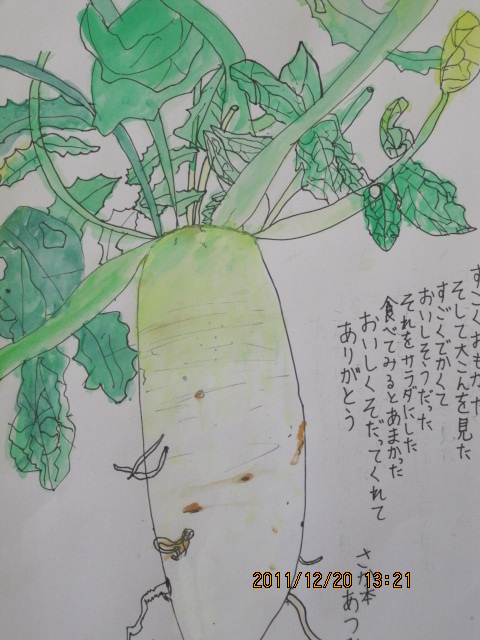 すごくおもかった
そして大こんを見た
すごくでかくて
おいしそうだった
それをサラダにした
食べてみるとあまかった
おいしくそだってくれて
ありがとう
さか本
あつ
2011/12/20 13:21